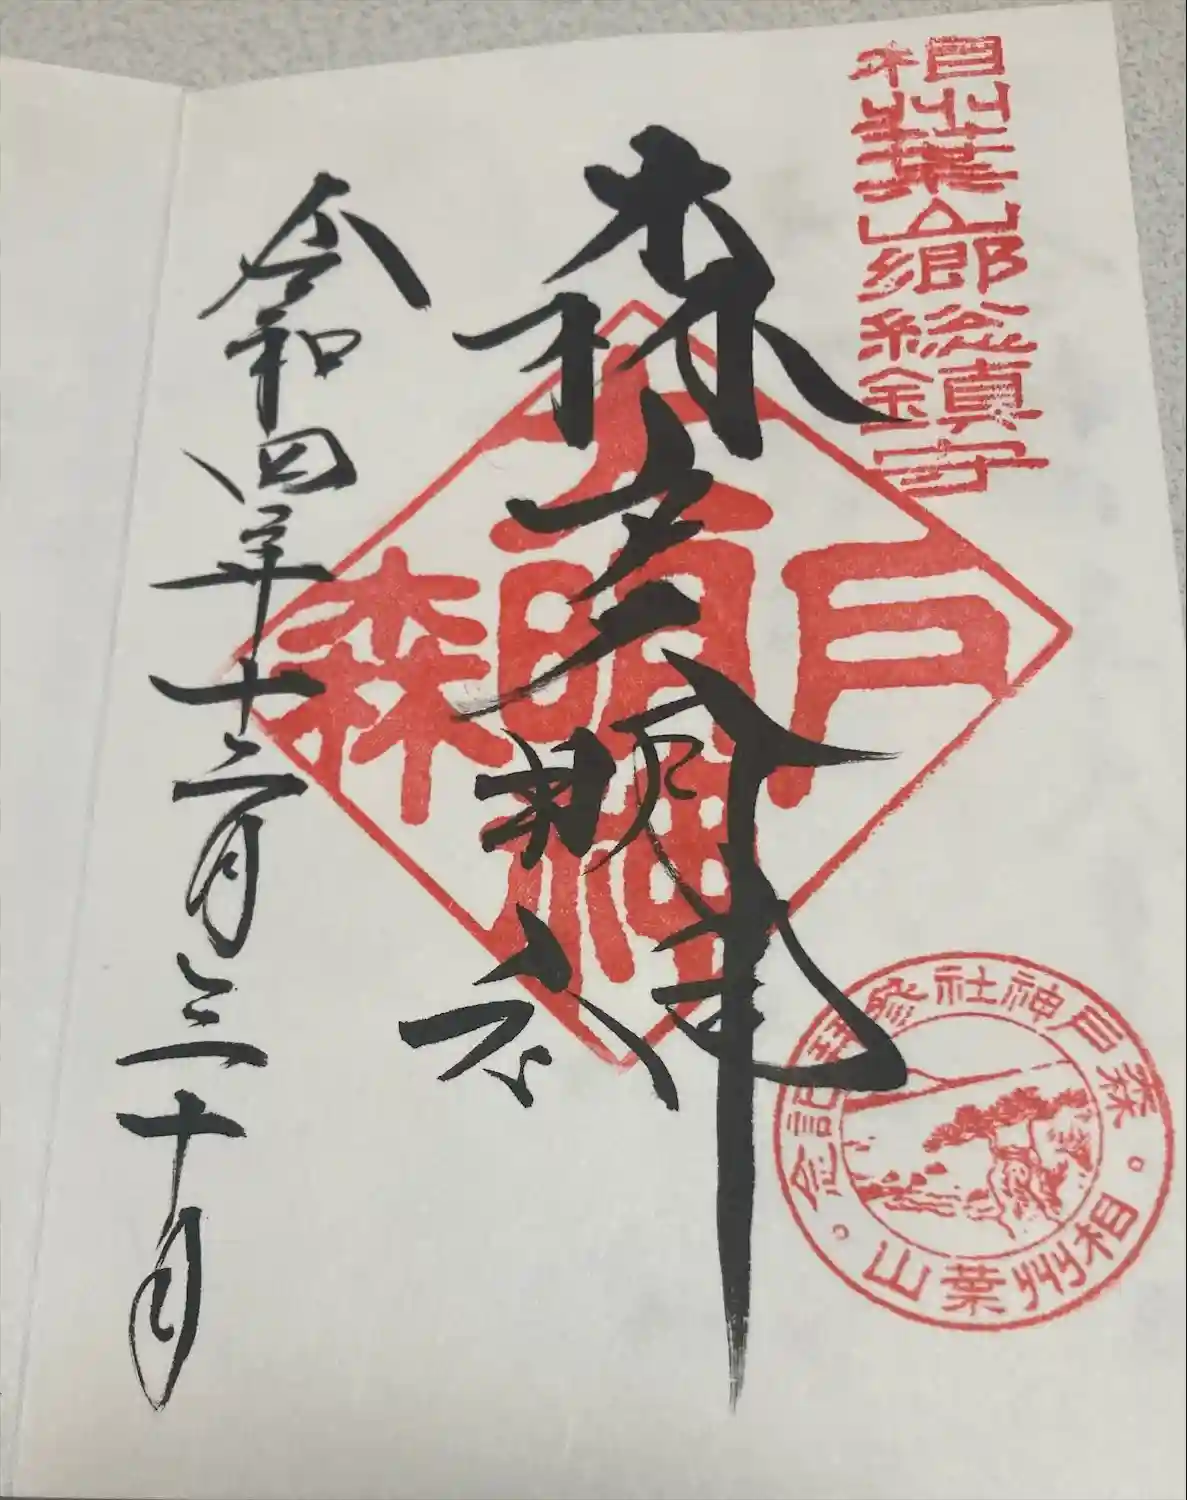 相州葉山郷総鎮守
森
大明神
森戸
森戸神社參拜記念
相州葉山
令和四年十二月三十日